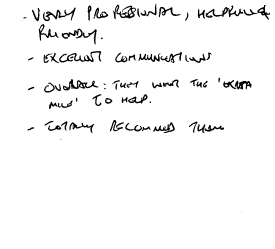 - VERY PROFESSIONAL, HELPFUL &
FRIENDLY.
- EXCELLENT COMMUNICATIONS
- OVERALL: THEY WENT THE 'EXTRA
MILE' TO HELP.
- TOTALLY RECOMMEND THEM